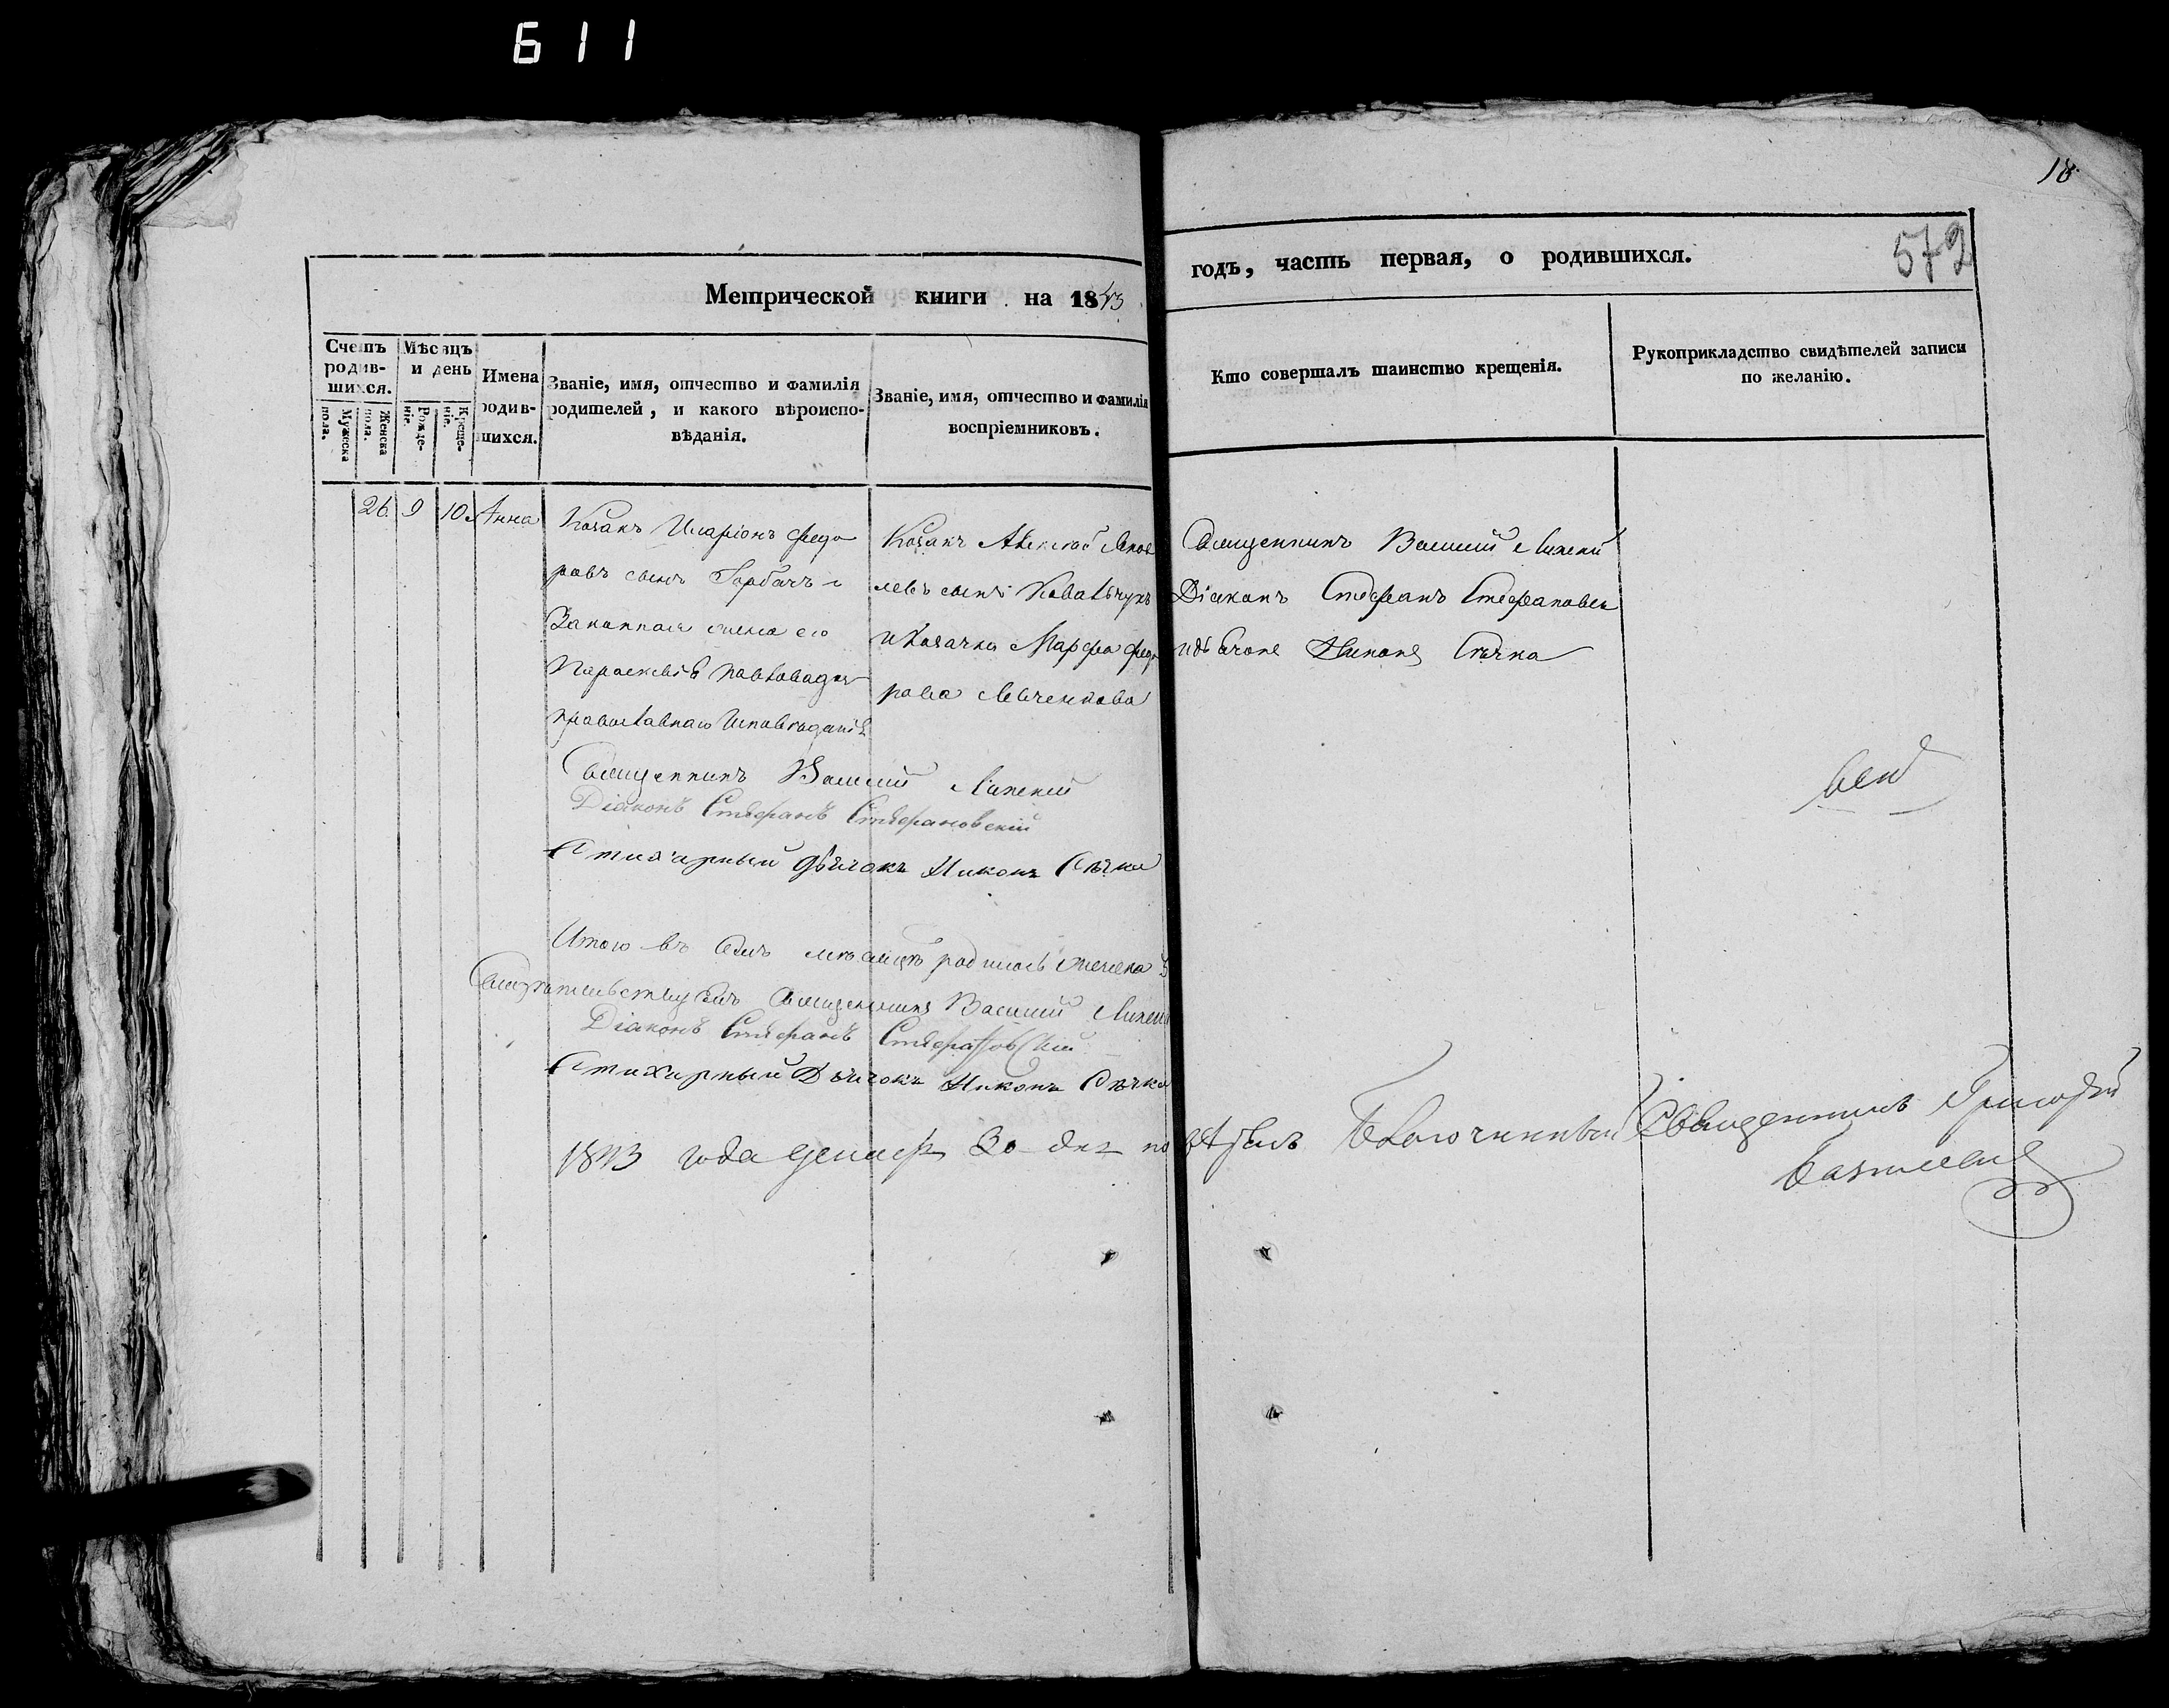 611
18
572
Метрической книги на 1843
годъ, часть первая, о родившихся.
Счетъ родившихся.
Мужеска пола.
Женска пола.
Мѣсяцъ и день
Рожденіе.
Крещеніе.
Имена родившихся.
Званіе, имя, отчество и фамилія
родителей, и какого вѣроиспо-
вѣданія.
Званіе, имя, отчество и фамилія
воспріемниковъ.
Кто совершалъ таинство крещенія.
Рукоприкладство свидѣтелей записи
по желанію.
26. 9 10 Анна
Козакъ Иларіонъ Федо
ровъ сынъ Горбачъ и
Законная жена его
Параскевія Павлова
православнаго Исповѣданія
Козакъ Алексѣй Яков
левъ сынъ Ковальчукъ
и Козачка Марфа Федо
рова
Священникъ Василій
Діаконъ Стефанъ Стефановскі
и дьячокъ Никонъ Сѣчка
Священникъ Василій
Діаконъ Стефанъ Стефановскій
Стихарный дьячокъ Никонъ Сѣчка
Итого въ семъ мѣсяцѣ родилось женска
Священникъ Василій
Діаконъ Стефанъ Стефановскій
Стихарный Дьячокъ Никонъ Сѣчка
1843 года 30 дня
Благочинный Священникъ Григорій